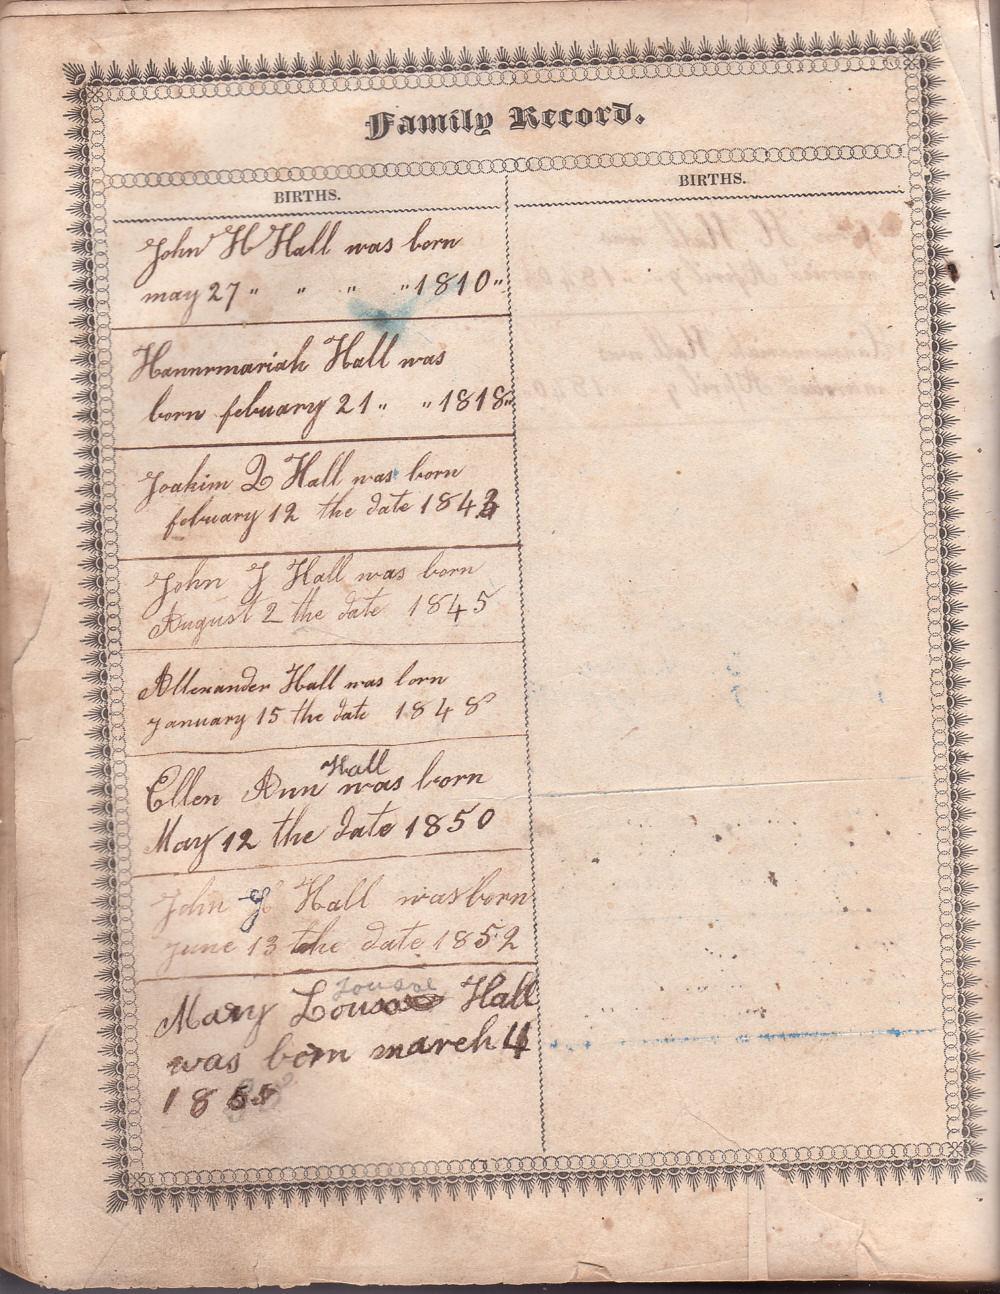 Family Record.
BIRTHS.
John H Hall was born
may 27 " " " " 1810 "
Hannermariah Hall was
born febuary 21 " " 1818 "
Joakim D Hall was born
febuary 12 the date 1843
John J Hall was born
August 2 the date 1845
Allexander Hall was born
January 15 the date 1848
Hall
Ellen Ann was born
May 12 the date 1850
John Hall was born
June 13 the date 1852
Mary Hall
was born march 4
18
BIRTHS.